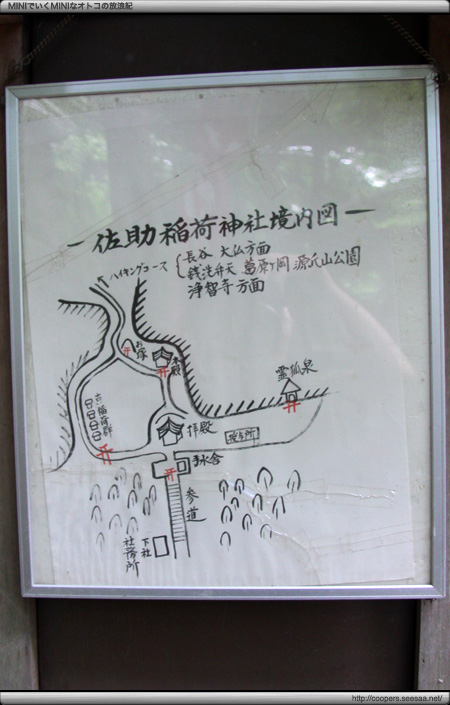 MINIでいくMINIなオトコの放浪記
ー佐助稲荷神社境内図ー
ハイキングコース
長谷 大仏方面
銭洗弁天 葛原ヶ岡 源氏山公園
浄智寺方面
お塚
本殿
霊狐泉
古稲荷群
拝殿
授与所
手水舎
参道
下社
社務所
http://coopers.seesaa.net/